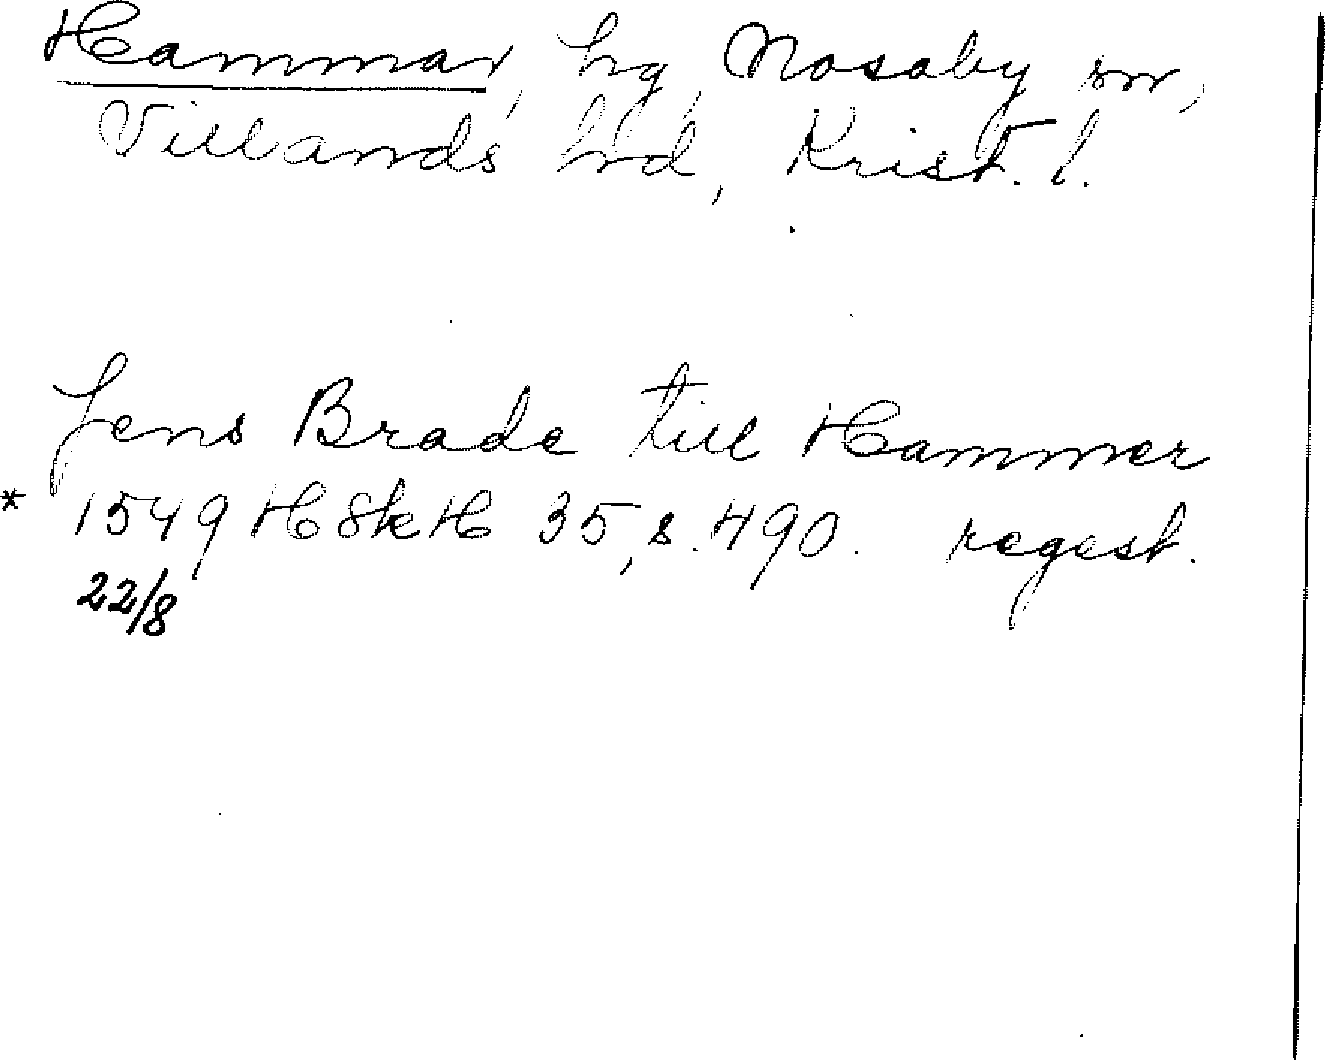 Hammar, hg, Nosaby sn,
Villands hd, Krist. l.
Jens Brade till Hammer
* 1549 HSkH 35, s. 490. regest.
22/8